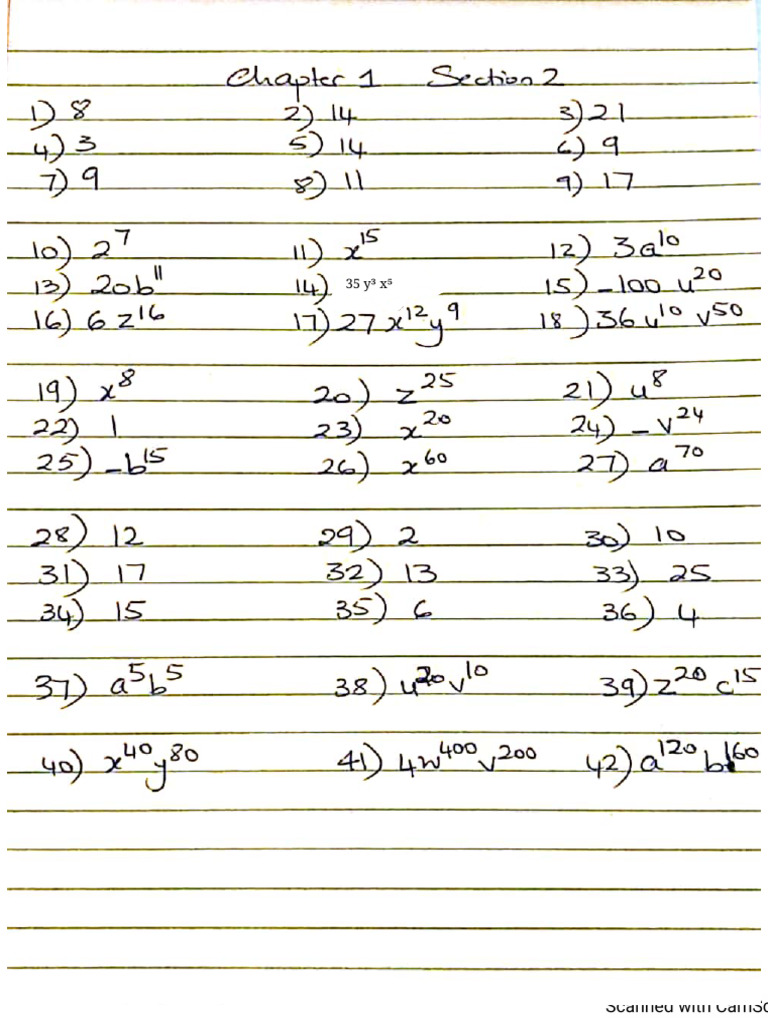 Chapter 1 Section 2
1) 8 2) 14 3) 21
4) 3 5) 14 6) 9
7) 9 8) 11 9) 17
10) 2⁷ 11) x¹⁵ 12) 3a¹⁰
13) 20b¹¹ 14) 35 y³ x⁵ 15) -100 u²⁰
16) 6 z¹⁶ 17) 27 x¹²y⁹ 18) 36 u¹⁰ v⁵⁰
19) x⁸ 20) z²⁵ 21) u⁸
22) 1 23) x²⁰ 24) - v²⁴
25) -b¹⁵ 26) x⁶⁰ 27) a⁷⁰
28) 12 29) 2 30) 10
31) 17 32) 13 33) 25
34) 15 35) 6 36) 4
37) a⁵b⁵ 38) u²⁰v¹⁰ 39) z²⁰ c¹⁵
40) x⁴⁰y⁸⁰ 41) 4w⁴⁰⁰v²⁰⁰ 42) a¹²⁰ b¹⁶⁰
Scanned with CamSc